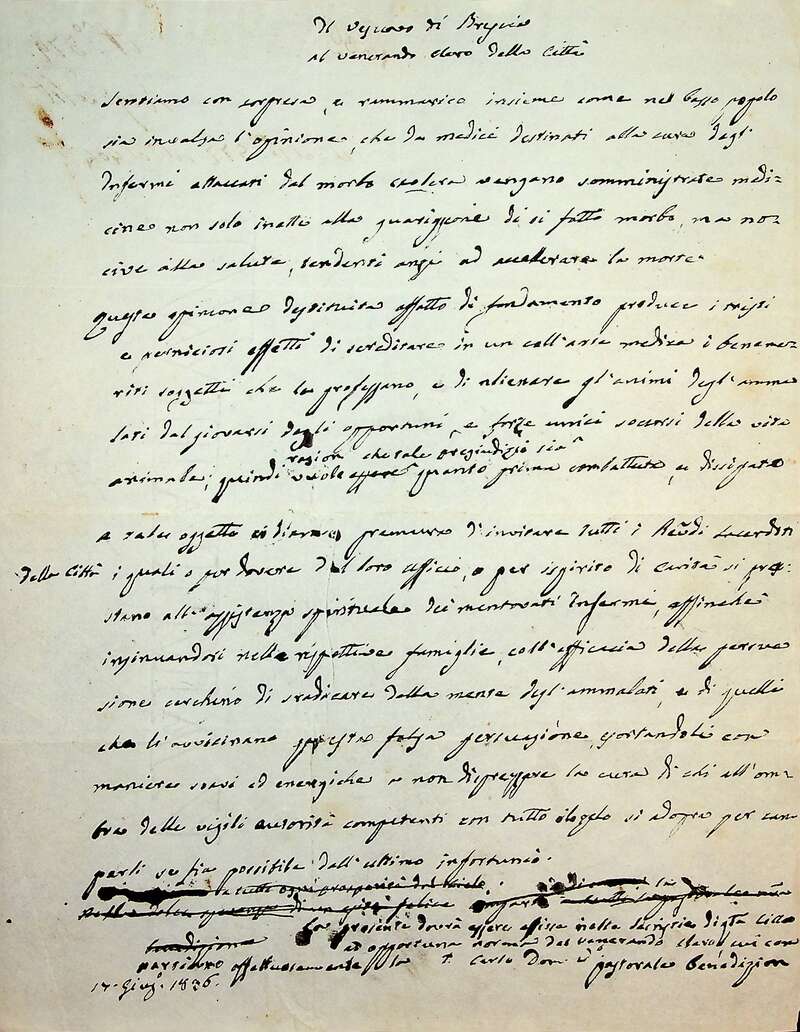 Il Vescovo di Brescia
al venerando clero della Città
Sentiamo con sorpresa, e rammarico insieme come nel basso popolo
sia invalsa l'opinione, che da medici destinati alla cura degl'
Infermi attaccati dal morbo colera vengano somministrate medi-
cine non solo inette alla guarigione di si fatto morbo, ma no-
cive alla salute, tendenti anzi ad accellerare la morte.
Questa opinione destituita affatto di fondamento produce i tristi
e perniciosi effetti di screditare in un coll'arte medica i beneme-
riti soggetti che la professano, e di alienare gl'animi degl'amma
lati dal giovarsi degli opportuni, e forse unici soccorsi della vita
ragion che tale pregiudizio sia
animale; quindi vuole essere quanto prima combattuto, e dissipato
a tale oggetto ci diamo premura d'invitare tutti i Revdi Sacerdoti
della Città i quali o per dovere del loro officio, o per ispirito di carità si pre
stano all'assistenza spirituale dei mentovati Infermi, affinchè
insinuandosi nelle rispettive famiglie, coll'efficacia della persua
sione cerchino di sradicare dalla mente degl'ammalati, e di quelli
che li avvicinano questa falsa persuasione, esortandoli con
maniere soavi ed energiche a non disprezzare la cura di chi all'om-
bra delle vigili autorità competenti con tutto il zelo si adopra per cam
parli se fia possibile dall'ultimo infortunio.
a tutti ogni prosperità del Cielo
di un felice
La presente dovrà essere affissa nelle sacristie di qta Città
ad opportuna norma del venerando clero, cui com
partiamo affettuosamente la pastorale benedizion
† Carlo Dom. Vo
17. Giugo 1836.